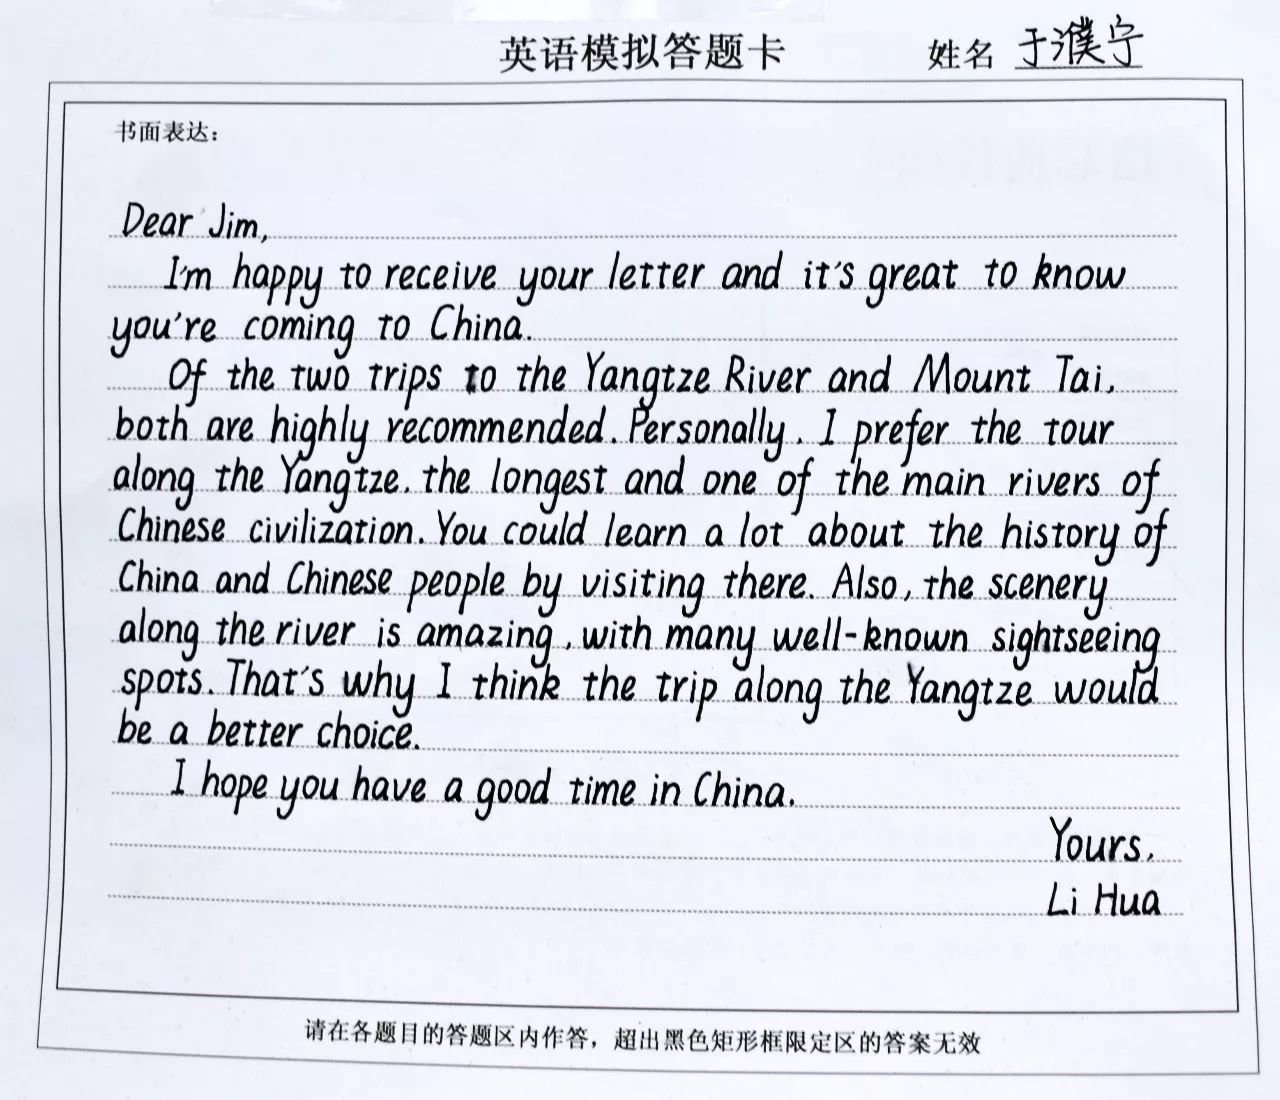 英语模拟答题卡 姓名 于濮宁
书面表达:
Dear Jim,
I'm happy to receive your letter and it's great to know
you're coming to China.
Of the two trips to the Yangtze River and Mount Tai,
both are highly recommended. Personally, I prefer the tour
along the Yangtze, the longest and one of the main rivers of
Chinese civilization. You could learn a lot about the history of
China and Chinese people by visiting there. Also, the scenery
along the river is amazing, with many well-known sightseeing
spots. That's why I think the trip along the Yangtze would
be a better choice.
I hope you have a good time in China.
Yours,
Li Hua
请在各题目的答题区内作答，超出黑色矩形框限定区的答案无效